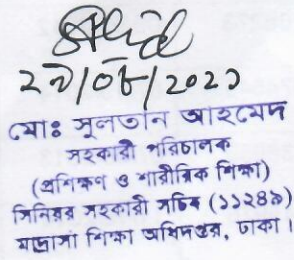 ২৯/০৮/২০২১
মোঃ সুলতান আহমেদ
সহকারী পরিচালক
(প্রশিক্ষণ ও শারীরিক শিক্ষা)
সিনিয়র সহকারী সচিব (১১২৪৯)
মাদ্রাসা শিক্ষা অধিদপ্তর, ঢাকা।